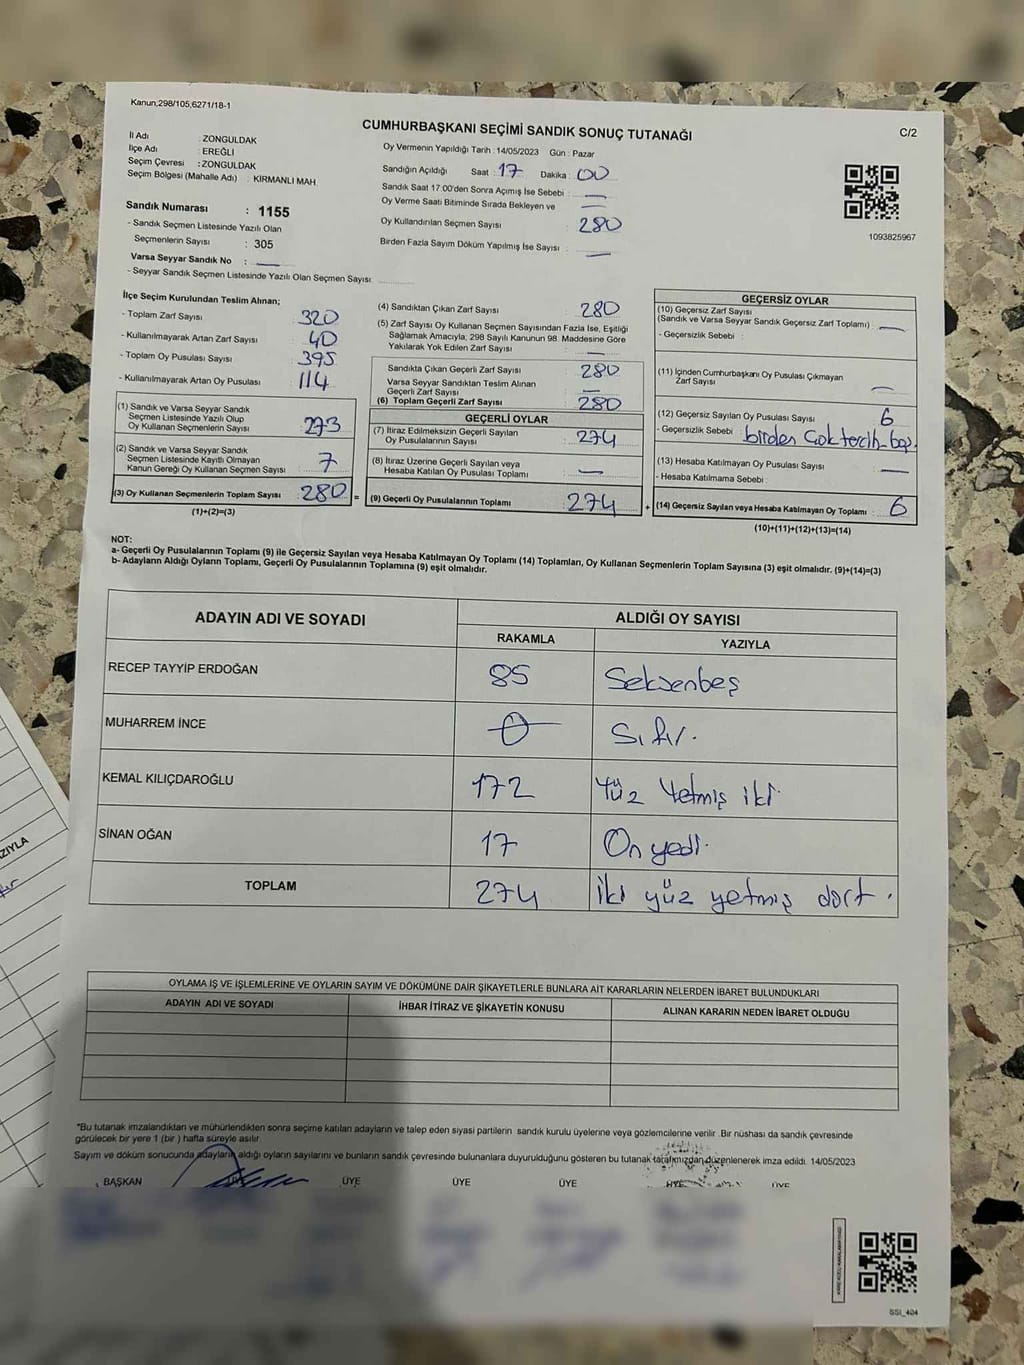 Kanun,298/105,6271/18-1
C/2
CUMHURBAŞKANI SEÇİMİ SANDIK SONUÇ TUTANAĞI
İl Adı : ZONGULDAK
İlçe Adı : EREĞLİ
Seçim Çevresi : ZONGULDAK
Seçim Bölgesi (Mahalle Adı) : KIRMANLI MAH.
Sandık Numarası : 1155
- Sandık Seçmen Listesinde Yazılı Olan
Seçmenlerin Sayısı : 305
Varsa Seyyar Sandık No : —
- Seyyar Sandık Seçmen Listesinde Yazılı Olan Seçmen Sayısı:
Oy Vermenin Yapıldığı Tarih : 14/05/2023 Gün : Pazar
Sandığın Açıldığı Saat : 17 Dakika : 00
Sandık Saat 17:00'den Sonra Açımış İse Sebebi : —
Oy Verme Saati Bitiminde Sırada Bekleyen ve —
Oy Kullandırılan Seçmen Sayısı 280
Birden Fazla Sayım Döküm Yapılmış İse Sayısı : —
1093825967
İlçe Seçim Kurulundan Teslim Alınan;
- Toplam Zarf Sayısı : 320
- Kullanılmayarak Artan Zarf Sayısı : 40
- Toplam Oy Pusulası Sayısı : 395
- Kullanılmayarak Artan Oy Pusulası : 114
(1) Sandık ve Varsa Seyyar Sandık
Seçmen Listesinde Yazılı Olup
Oy Kullanan Seçmenlerin Sayısı : 273
(2) Sandık ve Varsa Seyyar Sandık
Seçmen Listesinde Kayıtlı Olmayan
Kanun Gereği Oy Kullanan Seçmen Sayısı : 7
(3) Oy Kullanan Seçmenlerin Toplam Sayısı : 280 =
(1)+(2)=(3)
(4) Sandıktan Çıkan Zarf Sayısı : 280
(5) Zarf Sayısı Oy Kullanan Seçmen Sayısından Fazla İse, Eşitliği
Sağlamak Amacıyla, 298 Sayılı Kanunun 98. Maddesine Göre
Yakılarak Yok Edilen Zarf Sayısı : —
Sandıkta Çıkan Geçerli Zarf Sayısı : 280
Varsa Seyyar Sandıktan Teslim Alınan
Geçerli Zarf Sayısı : —
(6) Toplam Geçerli Zarf Sayısı : 280
GEÇERLİ OYLAR
(7) İtiraz Edilmeksizin Geçerli Sayılan
Oy Pusulalarının Sayısı : 274
(8) İtiraz Üzerine Geçerli Sayılan veya
Hesaba Katılan Oy Pusulası Toplamı : —
(9) Geçerli Oy Pusulalarının Toplamı : 274 +
GEÇERSİZ OYLAR
(10) Geçersiz Zarf Sayısı
(Sandık ve Varsa Seyyar Sandık Geçersiz Zarf Toplamı) : —
- Geçersizlik Sebebi :
(11) İçinden Cumhurbaşkanı Oy Pusulası Çıkmayan
Zarf Sayısı : —
(12) Geçersiz Sayılan Oy Pusulası Sayısı : 6
- Geçersizlik Sebebi : birden çok tercih
(13) Hesaba Katılmayan Oy Pusulası Sayısı : —
- Hesaba Katılmama Sebebi :
(14) Geçersiz Sayılan veya Hesaba Katılmayan Oy Toplamı : 6
(10)+(11)+(12)+(13)=(14)
NOT:
a- Geçerli Oy Pusulalarının Toplamı (9) ile Geçersiz Sayılan veya Hesaba Katılmayan Oy Toplamı (14) Toplamları, Oy Kullanan Seçmenlerin Toplam Sayısına (3) eşit olmalıdır. (9)+(14)=(3)
b- Adayların Aldığı Oyların Toplamı, Geçerli Oy Pusulalarının Toplamına (9) eşit olmalıdır.
ADAYIN ADI VE SOYADI ALDIĞI OY SAYISI
RAKAMLA YAZIYLA
RECEP TAYYİP ERDOĞAN 85 Seksenbeş
MUHARREM İNCE 0 Sıfır.
KEMAL KILIÇDAROĞLU 172 Yüz Yetmiş iki
SİNAN OĞAN 17 On yedi.
TOPLAM 274 İki yüz yetmiş dört.
OYLAMA İŞ VE İŞLEMLERİNE VE OYLARIN SAYIM VE DÖKÜMÜNE DAİR ŞİKAYETLERLE BUNLARA AİT KARARLARIN NELERDEN İBARET BULUNDUKLARI
ADAYIN ADI VE SOYADI İHBAR İTİRAZ VE ŞİKAYETİN KONUSU ALINAN KARARIN NEDEN İBARET OLDUĞU
*Bu tutanak imzalandıktan ve mühürlendikten sonra seçime katılan adayların ve talep eden siyasi partilerin sandık kurulu üyelerine veya gözlemcilerine verilir .Bir nüshası da sandık çevresinde
görülecek bir yere 1 (bir ) hafta süreyle asılır
Sayım ve döküm sonucunda adayların aldığı oyların sayılarını ve bunların sandık çevresinde bulunanlara duyurulduğunu gösteren bu tutanak tarafımızdan düzenlenerek imza edildi. 14/05/2023
BAŞKAN ÜYE ÜYE ÜYE ÜYE ÜYE ÜYE
SSI_404
ZIYLA